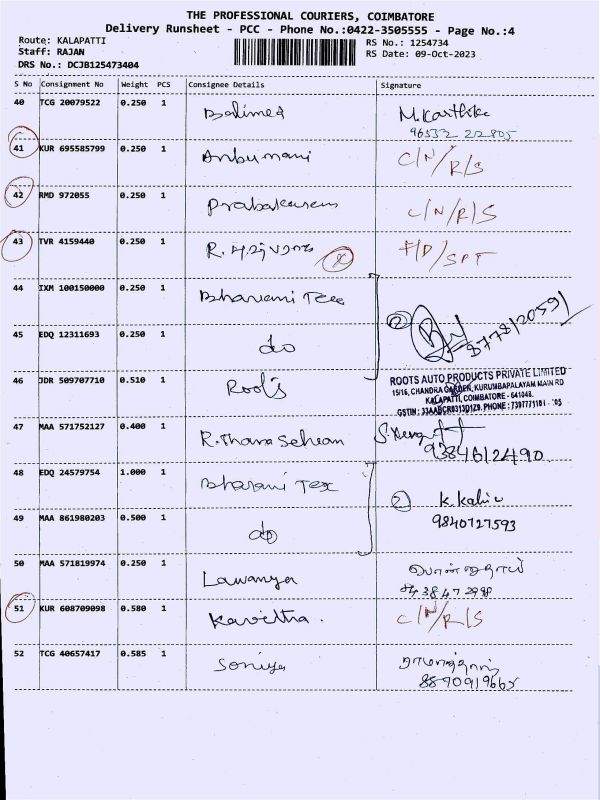 THE PROFESSIONAL COURIERS, COIMBATORE
Delivery Runsheet - PCC - Phone No.:0422-3505555 - Page No.:4
Route: KALAPATTI
RS No.: 1254734
Staff: RAJAN
RS Date: 09-Oct-2023
DRS No.: DCJB125473404
S No Consignment No Weight PCS Consignee Details Signature
40 TCG 20079522 0.250 1 M. Karthika
96532 22805
41 KUR 695585799 0.250 1 Anbumani C/N/R/S
42 RMD 972055 0.250 1 C/N/R/S
43 TVR 4159440 0.250 1 R. F/D/SPT
44 IXM 100150000 0.250 1 Bharani Tex 2
45 EDQ 12311693 0.250 1 do
46 JDR 509707710 0.510 1 Roots ROOTS AUTO PRODUCTS PRIVATE LIMITED
15/16, CHANDRA GARDEN, KURUMBAPALAYAM MAIN RD
KALAPATTI, COIMBATORE - 641048.
47 MAA 571752127 0.400 1 9384612490
48 EDQ 24579754 1.000 1 Bharani Tex 2 K. Kaliv
49 MAA 861980203 0.500 1 do 9840727593
50 MAA 571819974 0.250 1 Lawanya
51 KUR 608709098 0.580 1 Kavitha. C/N/R/S
52 TCG 40657417 0.585 1 Soniya
8870919665